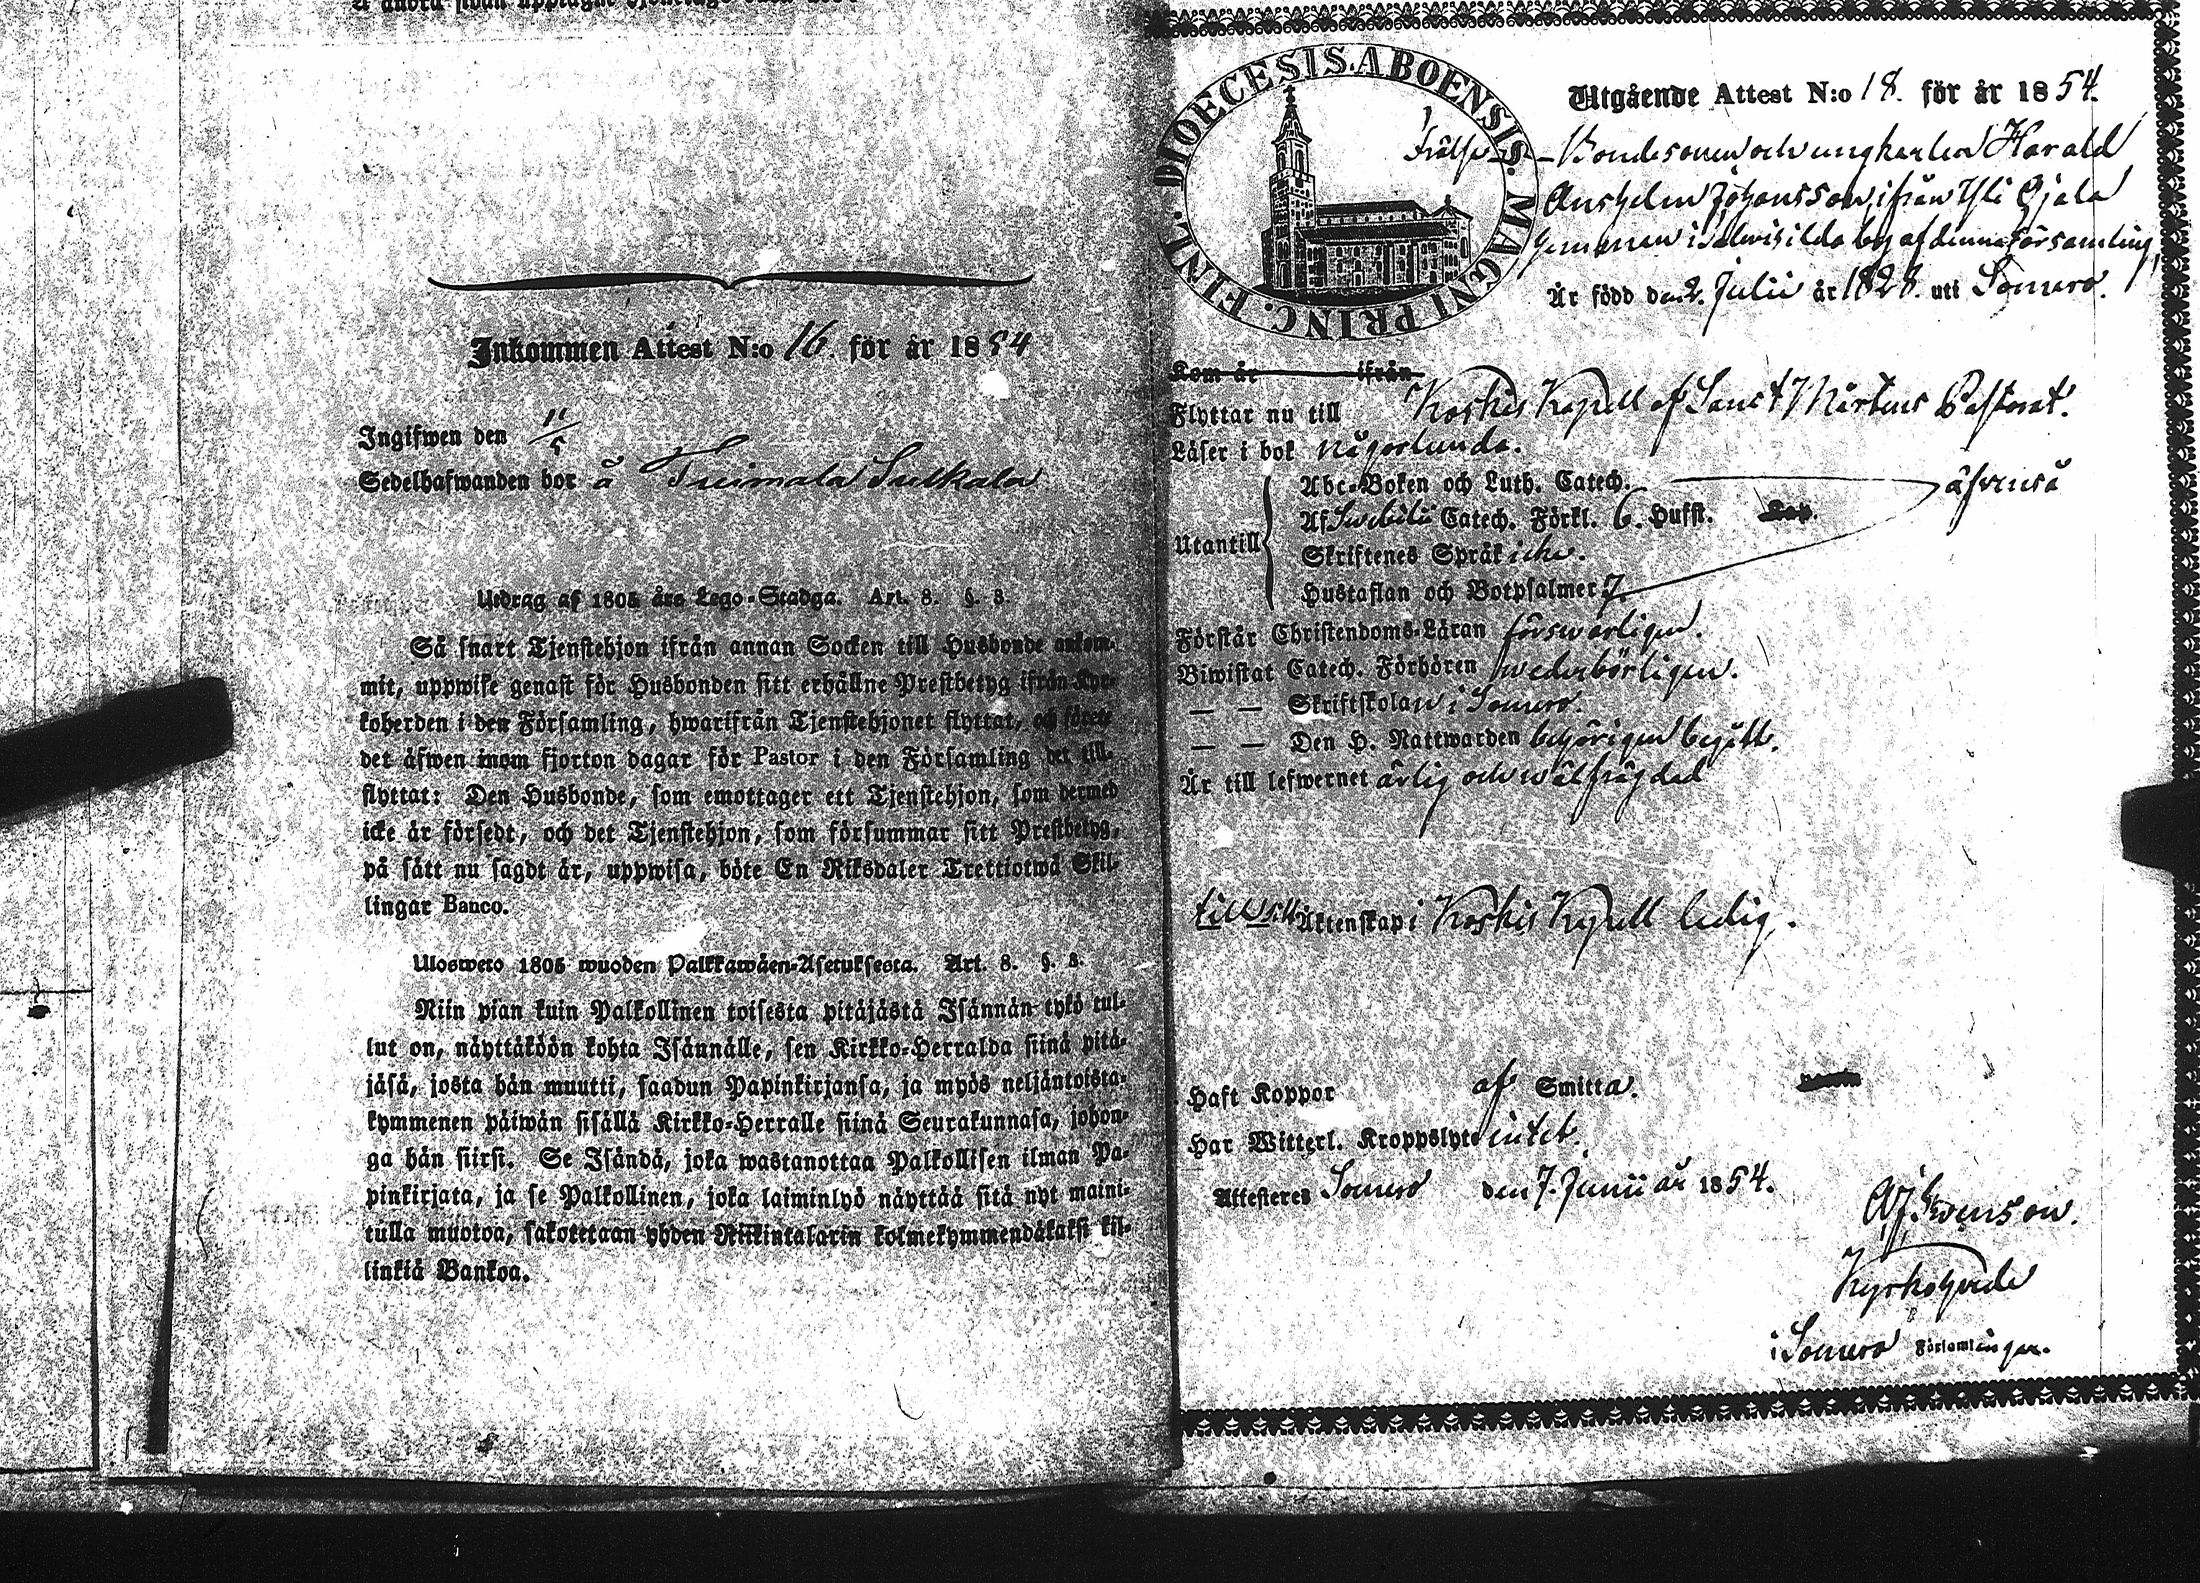 Inkommen Attest N:o 16. för år 1854
Ingifwen den 11/5
Sedelhafwanden bor å Tuimala Sulkala
Utdrag af 1805 års Lego-Stadga. Art. 8. §. 3.
Så snart Tjenstehjon ifrån annan Socken till Husbonde ankom-
mit, uppwise genast för Husbonden sitt erhållne Prestbetyg ifrån Kyr-
koherden i den Församling, hwarifrån Tjenstehjonet flyttat, och förete
det äfwen inom fjorton dagar för Pastor i den Församling det till-
flyttat: Den Husbonde, som emottager ett Tjenstehjon, som dermed
icke är försedt, och det Tjenstehjon, som försummar sitt Prestbetyg,
på sätt nu sagdt är, uppwisa, böte En Riksdaler Trettiotwå Skil-
lingar Banco.
Ulosweto 1805 wuoden Palkkawäen-Asetuksesta. Art. 8. §. 3.
Niin pian kuin Palkollinen toisesta pitäjästä Isännän tykö tul-
lut on, näyttäköön kohta Isännälle, sen Kirkko-Herralda siinä pitä-
jäsä, josta hän muutti, saadun Papinkirjansa, ja myös neljäntoista-
kymmenen päiwän sisällä Kirkko-Herralle siinä Seurakunnasa, johon-
ga hän siirsi. Se Isändä, joka wastanottaa Palkollisen ilman Pa-
pinkirjata, ja se Palkollinen, joka laiminlyö näyttää sitä nyt maini-
tulla muotoa, sakotetaan yhden Riikintalarin kolmekymmendäkaksi kil-
linkiä Bankoa.
FINL. DIOECESIS. ABOENSIS. MAGNI PRINC.
Utgående Attest N:o 18. för år 1854.
Frälse-Bondesonen och ungkarlen Harald
Anshelm Johansson, ifrån Yli Ojala
hemman i by af denna församling,
Är född den 2. Julii år 1828. uti Somero.
Kom år ifrån
Flyttar nu till Koskis Kapell af Sanct Mårtens Pastorat.
Läser i bok någorlunda.
Utantill
Abc-Boken och Luth. Catech. äfvenså
Af Svebilii Catech. Förkl. 6. Hufst. Kap.
Skriftenes Språk icke.
Hustaflan och Botpsalmer 7.
Förstår Christendoms-Läran försvarligen.
Biwistat Catech. Förhören vederbörligen.
— — Skriftskolan i Somero.
— — Den H. Nattwarden behörigen begått.
Är till lefwernet ärlig och wälfrägdad
till sitt Äktenskap i Koskis Kapell ledig.
Haft Koppor af Smitta.
Har Witterl. Kroppslyte intet.
Attesteras Somero den 7. Junii år 1854.
Kyrkoherde
i Somero Församlingar.